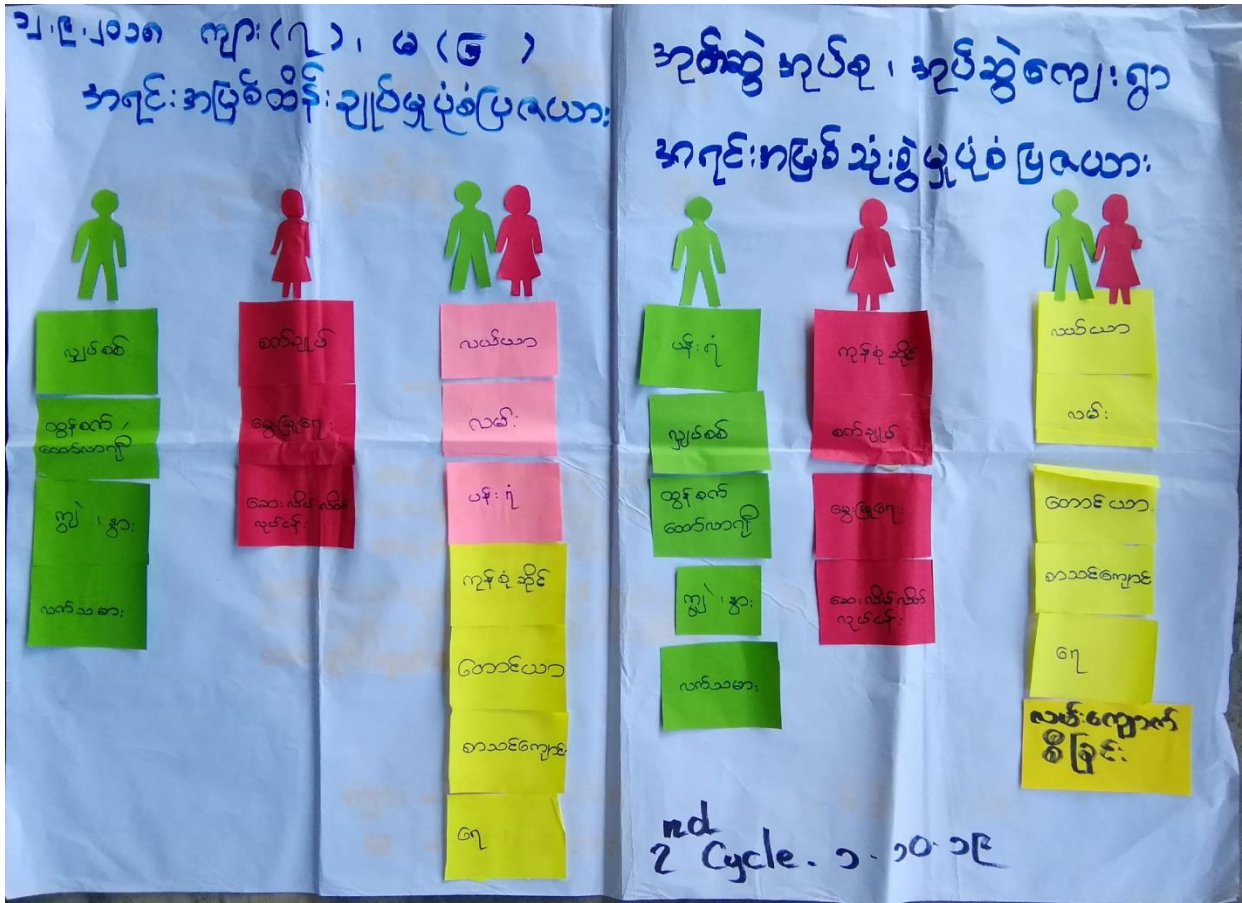 ၁၂.၉.၂၀၁၈ ကျား(၇)၊ မ(၆)
အရင်းအမြစ်ထိန်းချုပ်မှုပုံစံပြဇယား
အုတ်ဆွဲအုပ်စု၊ အုပ်ဆွဲကျေးရွာ
အရင်းအမြစ်သုံးစွဲမှုပုံစံပြဇယား
လျှပ်စစ်
ထွန်စက်၊
ထော်လာဂျီ
ကျွဲ၊ နွား
လက်သမား
စက်ချုပ်
မွေးမြူရေး
ဆေးလိပ်လိပ်
လုပ်ငန်း
လယ်ယာ
လမ်း
ပန်းရံ
ကုန်စုံဆိုင်
တောင်ယာ
စာသင်ကျောင်း
ရေ
ပန်းရံ
လျှပ်စစ်
ထွန်စက်
ထော်လာဂျီ
ကျွဲ၊ နွား
လက်သမား
ကုန်စုံဆိုင်
စက်ချုပ်
မွေးမြူရေး
ဆေးလိပ်လိပ်
လုပ်ငန်း
လယ်ယာ
လမ်း
တောင်ယာ
စာသင်ကျောင်း
ရေ
လမ်းကျောက်
စီခြင်း
2nd Cycle. ၁.၁၀.၁၉